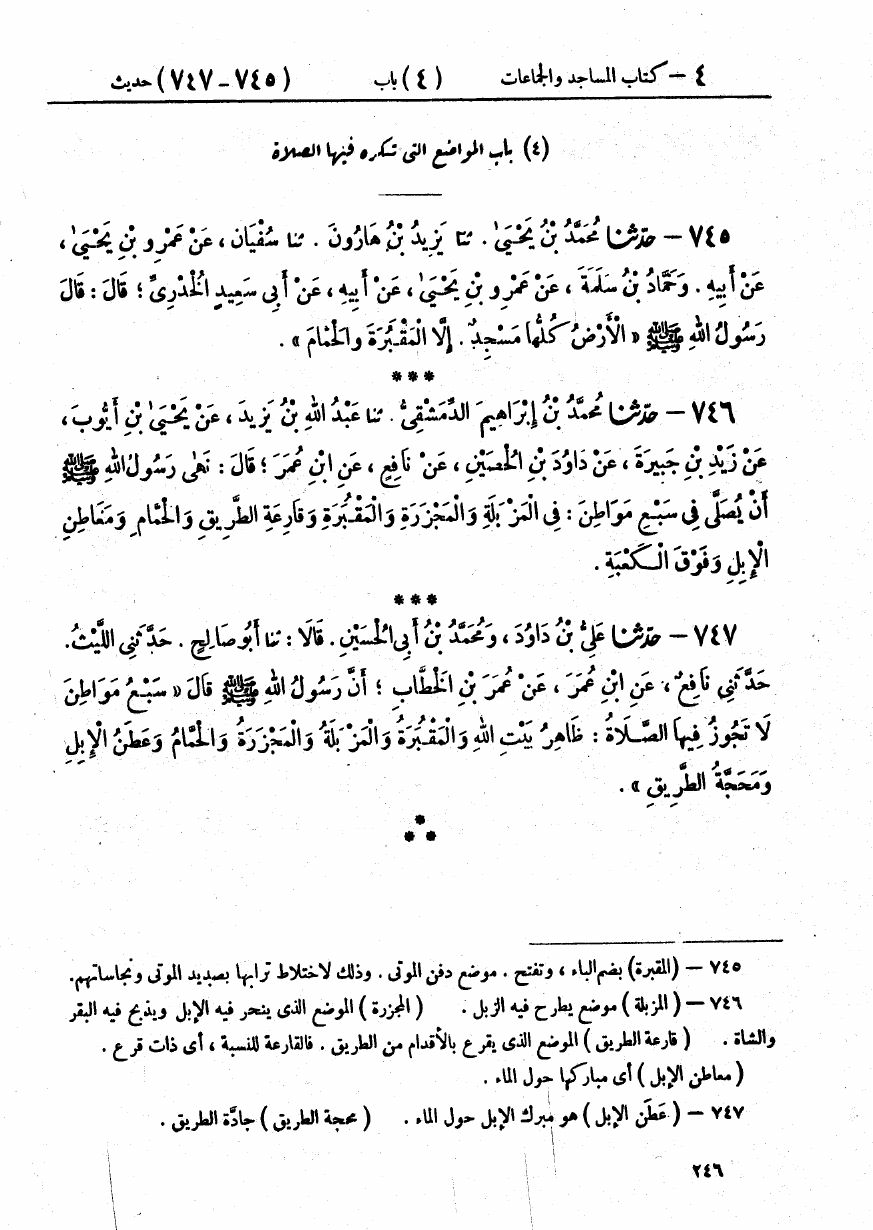 ٤ – كتاب المساجد والجماعات (٤) باب (٧٤٥ – ٧٤٧) حديث
(٤) باب المواضع التى تكره فيها الصلاة
٧٤٥ – حدّثنا مُحَمَّدُ بْنُ يَحْيَىٰ . ثنا يَزِيدُ بْنُ هَارُونَ . ثنا سُفْيَان ، عَنْ عَمْرِو بْنِ يَحْيَىٰ ،
عَنْ أَبِيهِ . وَحَمَّادُ بْنُ سَلَمَةَ ، عَنْ عَمْرِو بْنِ يَحْيَىٰ ، عَنْ أَبِيهِ ، عَنْ أَبِى سَعِيدٍ الْخُدْرِىِّ ؛ قَالَ : قَالَ
رَسُولُ اللهِ ﷺ « الْأَرْضُ كُلُّهَا مَسْجِدٌ . إِلَّا الْمَقْبُرَةَ والْحَمَّامَ » .
***
٧٤٦ – حدّثنا مُحَمَّدُ بْنُ إِبْرَاهِيمَ الدِّمَشْقِىُّ . ثنا عَبْدُ اللهِ بْنُ يَزِيدَ ، عَنْ يَحْيَىٰ بْنِ أَيُّوبَ ،
عَنْ زَيْدِ بْنِ جَبِيرَةَ ، عَنْ دَاوُدَ بْنِ الْحُصَيْنِ ، عَنْ نَافِعٍ ، عَنِ ابْنِ عُمَرَ ؛ قَالَ : نَهَى رَسُولُ اللهِ ﷺ
أَنْ يُصَلَّى فِى سَبْعِ مَوَاطِنَ : فِى الْمَزْبَلَةِ وَالْمَجْزَرَةِ وَالْمَقْبُرَةِ وَقَارِعَةِ الطَّرِيقِ وَالْحَمَّامِ وَمَعَاطِنِ
الْإِبِلِ وَفَوْقَ الْكَعْبَةِ .
***
٧٤٧ – حدّثنا عَلِىُّ بْنُ دَاوُدَ ، وَمُحَمَّدُ بْنُ أَبِى الْحُسَيْنِ . قَالَا : ثنا أَبُو صَالِحٍ . حَدَّثَنِى اللَّيْثُ .
حَدَّثَنِى نَافِعٌ ، عَنِ ابْنِ عُمَرَ ، عَنْ عُمَرَ بْنِ الْخَطَّابِ ؛ أَنَّ رَسُولَ اللهِ ﷺ قَالَ « سَبْعُ مَوَاطِنَ
لَا تَجُوزُ فِيهَا الصَّلَاةُ : ظَاهِرُ بَيْتِ اللهِ وَالْمَقْبُرَةُ وَالْمَزْبَلَةُ وَالْمَجْزَرَةُ وَالْحَمَّامُ وَعَطَنُ الْإِبِلِ
وَمَحَجَّةُ الطَّرِيقِ » .
***
٧٤٥ – (المقبرة) بضم الباء ، وتفتح . موضع دفن الموتى . وذلك لاختلاط ترابها بصديد الموتى ونجاساتهم.
٧٤٦ – (المزبلة) موضع يطرح فيه الزبل . (المجزرة) الموضع الذى ينحر فيه الإبل ويذبح فيه البقر
والشاة . (قارعة الطريق) الموضع الذى يقرع بالأقدام من الطريق . فالقارعة للنسبة ، أى ذات قرع .
(معاطن الإبل) أى مباركها حول الماء .
٧٤٧ – (عَطَن الإبل) هو مبرك الإبل حول الماء . (محجة الطريق) جادَّة الطريق .
٢٤٦